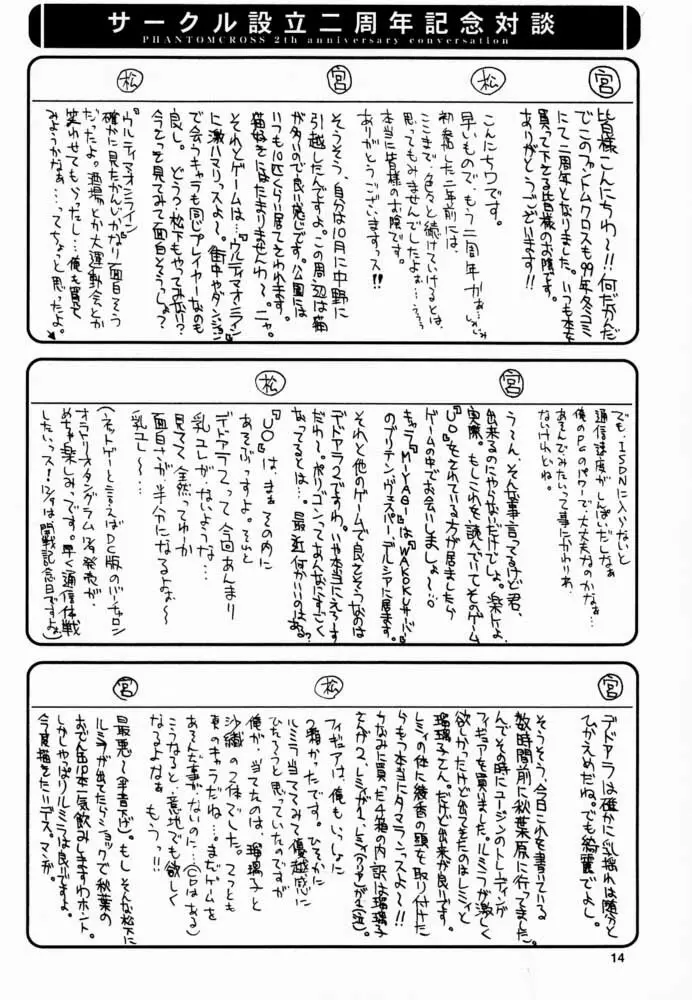 サークル設立二周年記念対談
PHANTOMCROSS 2th anniversary conversation
宮
皆様こんにちわ〜!!何だかんだ
でこのファントムクロスも99年冬コミ
にて二周年となりました。いつも本を
買って下さる皆様のお陰です。
ありがとうございます!!
松
こんにちワです。
早いもので、もう二周年かぁ…しみじみ
初参加した二年前には、
ここまで、色々と続けていけるとは、
思ってもみませんでしたよぉ…うううっ
本当に皆様のお陰です。
ありがとうございますっス!!
宮
そうそう、自分は10月に中野に
引越したんですよ。この周辺は猫
が多いので良い感じです。公園には
いつも10匹くらい居てそれます。
猫好きにはたまりませんわ〜。ニャ。
それとゲームは…『ウルティマオンライン』
に激ハマリっスよ〜。街中やダンジョン
で会うキャラも同じプレイヤーなのも
良し。どう?松下もやってみない?
今そっちを見てみて面白そうっしょ?
松
『ウルティマオンライン』
確かに見たかんじかなり面白そう
だったよ。酒場とか大運動会とか
笑わせてもらったし…俺も買って
みようかなぁ…ってちょっと思ったよ。
でも、ISDNに入らないと
通信速度がしんぱいだしなぁ
俺のPCのパワーで大丈夫なのかなぁ…
あそんでみたいって事にかわりぁ、
ないけれどね。
宮
う〜ん、そんな事言ってるけど君、
出来るのにやらないだけでしょ。楽しいよ、
実際。もしこれを読んでいてそのゲーム
『UO』をされている方が居ましたら
ゲームの中でお会いしましょ〜!:o
キャラ『MIYABI』は『WAKOKU』サーバー
のブリテン、ヴェスパー、デルシアに居ます。
それと他のゲームで良さそうなのは
デドアラ2ですわ。いや本当にえろーす
だわ〜。ポリゴンってあんなにすごく
なってるとは…。最近何かいいのはある?
松
『UO』は、まぁその内に
あそぶっすよ。それと
デドアラ2って、今回あんまり
乳ユレが、ないような…
見てて、全然ってゆーか
面白さが、半分になるよぉ〜
乳ユレ〜…
(ネットゲーと言えばDC版のバーチャロン
オラトリオタングラム12/9発売が、
めちゃ楽しみっです。早く通信体戦
したいっス!12/9は開戦記念日ですよぉ)
宮
デドアラは確かに乳揺れは随分と
ひかえめだね。でも綺麗でよし。
そうそう、今日これを書いている
数時間前に秋葉原に行ってました。
んでその時にユージンのトレーディング
フィギュアを買いました。ルミラが激しく
欲しかったけど出てきたのはレミィと
瑠璃子さん。だけど出来が良いです。
レミィの体に綾香の頭を取り付けた
らもう本当にタマランっスよ〜!!
ちなみに買った4箱の内訳は瑠璃子
さんが2、レミィが1、レミィ(アカ)が1(泣)。
松
フィギュアは、俺もいっしょに
2箱かったです。ひそかに
ルミラ当ててみて優越感に
ひたろうと思っていたのですが
俺が、当てたのは、瑠璃子と
沙織の2体でした。2つとも
東のキャラだね…まだゲームを
あそんだ事が、ないのに…(CDはある)
こうなると、意地でも欲しく
なるよなぁ もうっ!!
宮
最悪〜(半音下げ)。もし、そんな松下に
ルミラが出てたらショックで秋葉の
おでん缶10本一気飲みしますわホント。
しかしやっぱりルミラは良いですよ。
今度描きたいデス。マジが。
14